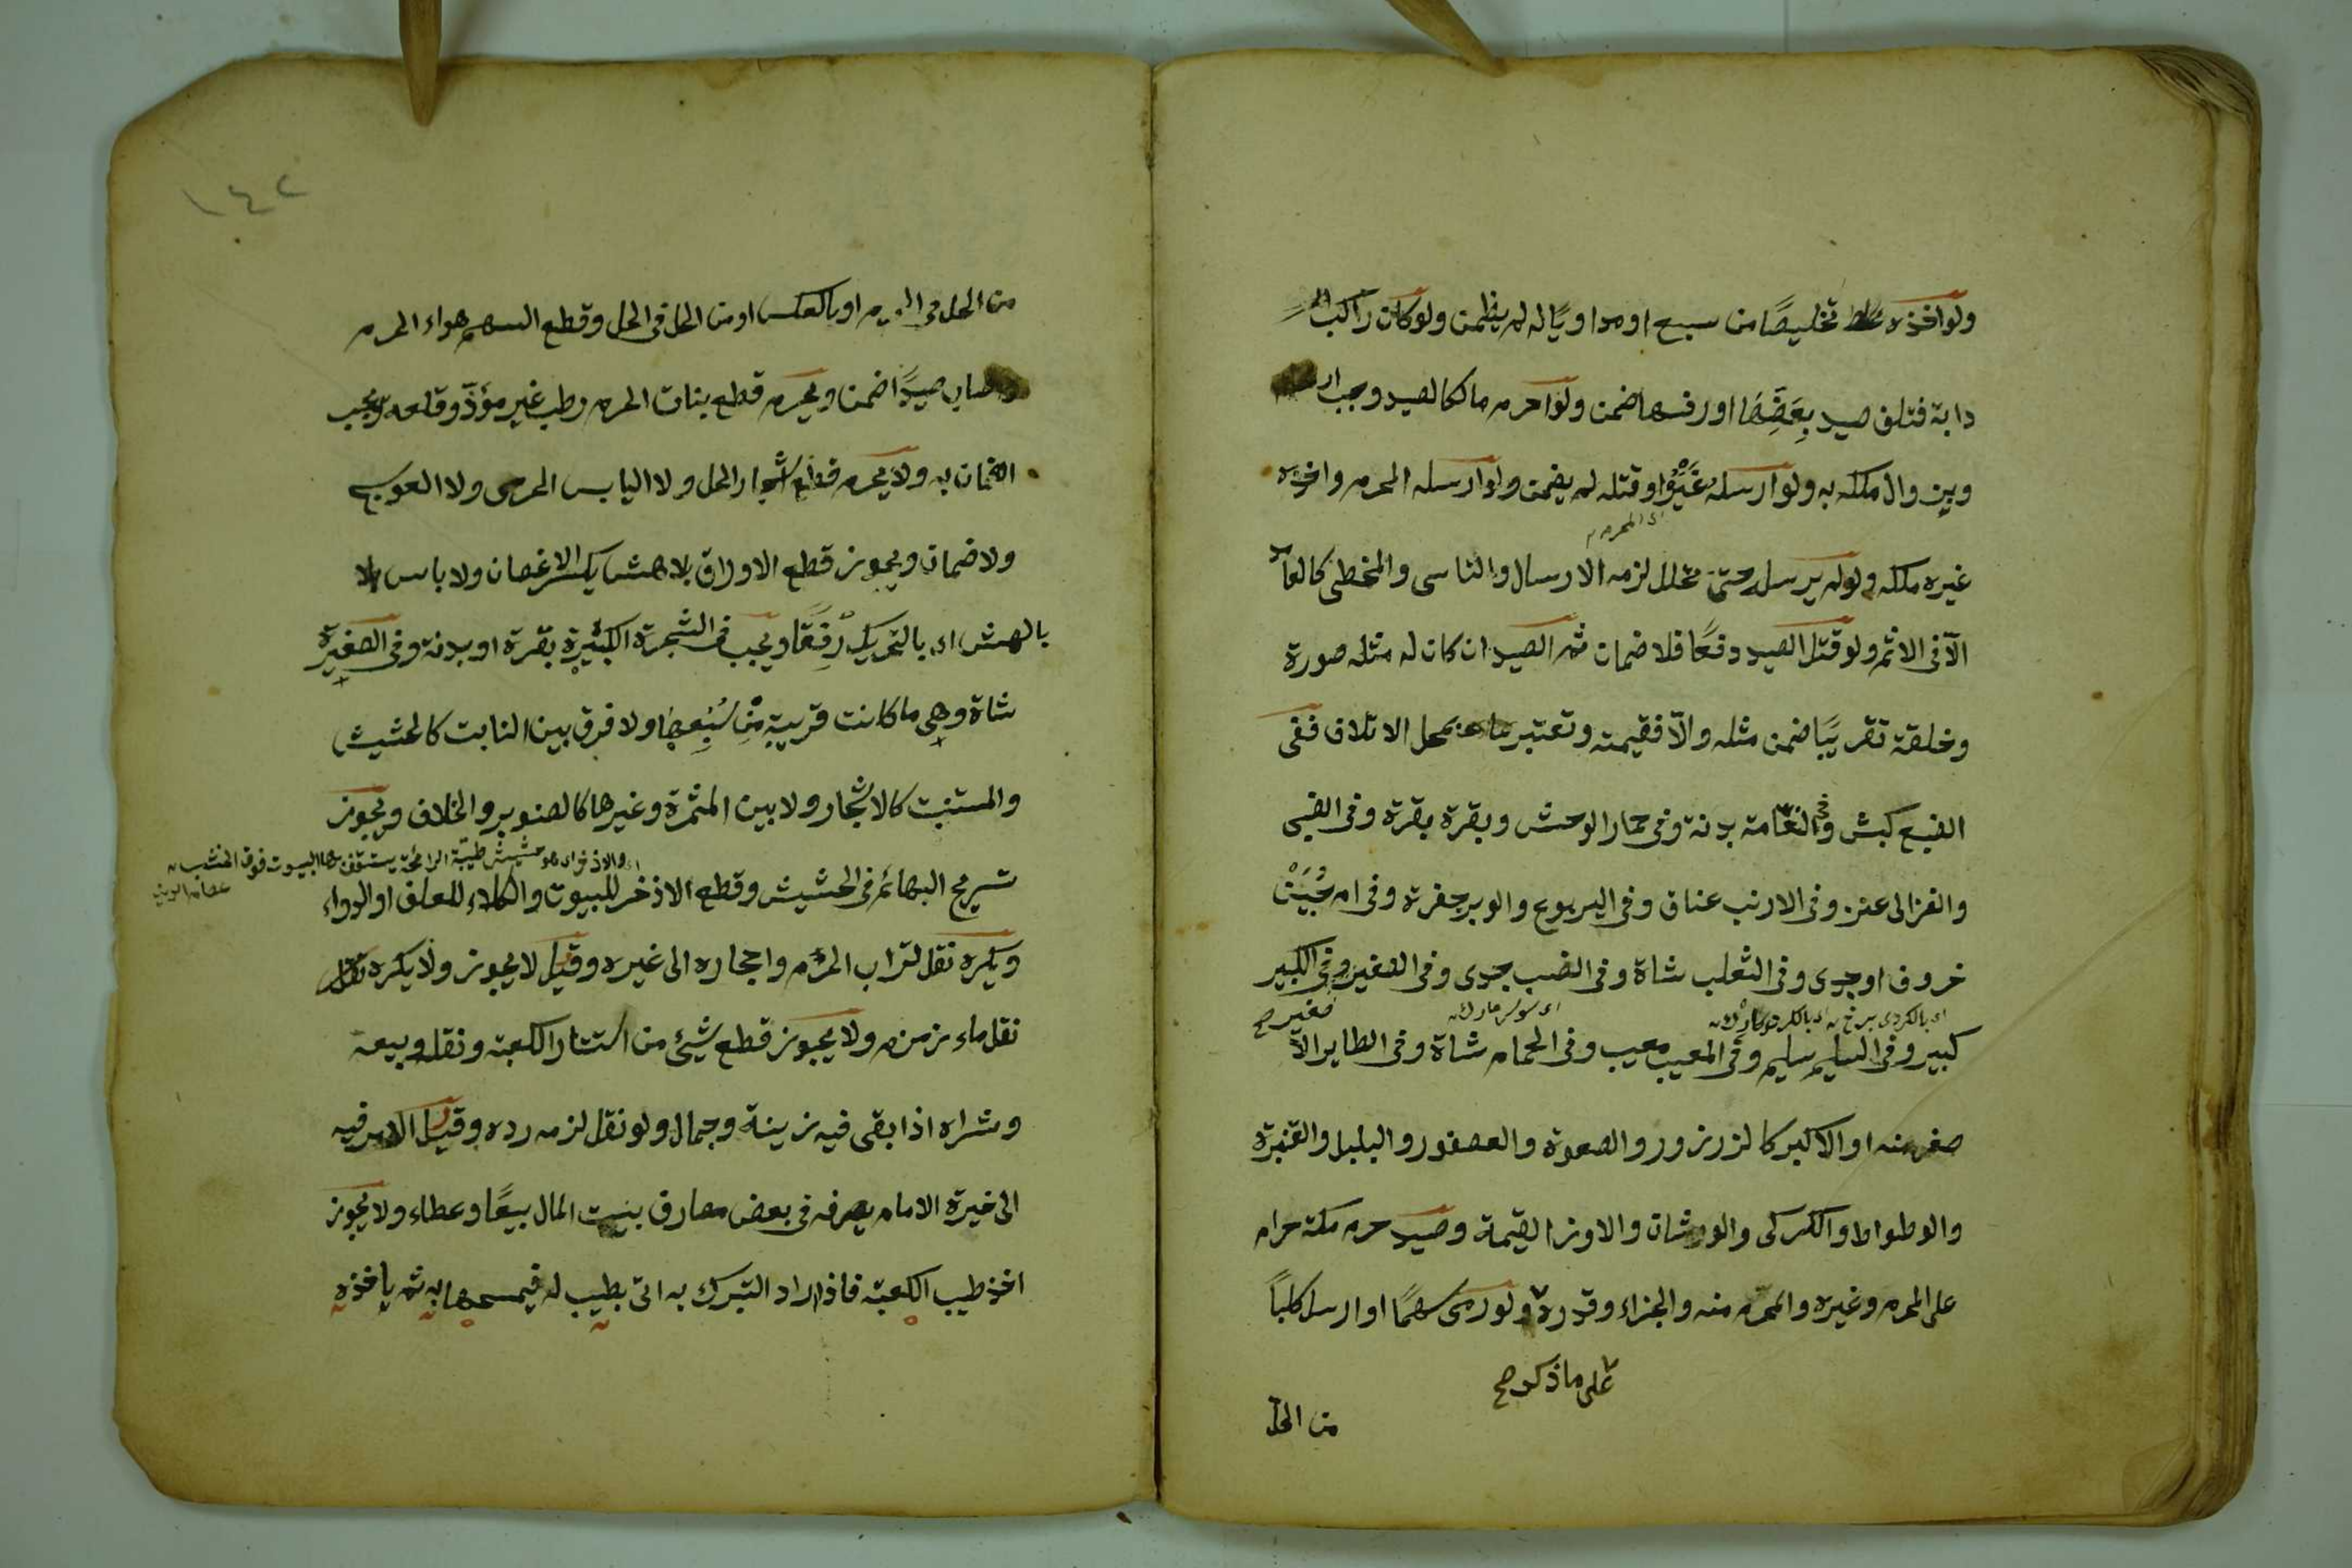 ولو اخذه تخليصًا من سبع او مداويًا له لم يضمن ولو كان راكب
دابة فتلف صيد بِعَضِّهَا او رفسها ضمن ولو احرم مالكا لصيد وجب ار
ويزول ملكه به ولو ارسله غيره او قتله لم يضمن ولو ارسله المحرم واخذه
اى المحرم
غيره ملكه ولو لم يرسل حتى تحلل لزمه الارسال والناسى والمخطئ كالعامد
الّا فى الاثم ولو قتل الصيد دفعًا فلا ضمان ثم الصيد ان كان له مثله صورة
وخلقة تقريبًا ضمن مثله والّا فقيمته وتعتبر بمحل الاتلاف ففى
الضبع كبش وفى النعامة بدنة وفى حمار الوحش وبقرة بقرة وفى الضبى
والغزالى عنز وفى الارنب عناق وفى اليربوع والوبر جفرة وفى ام حُبَيْن
خروف او جدى وفى الثعلب شاة وفى الضب جدى وفى الصغير صغير وفى الكبير
كبير وفى السليم سليم وفى المعيب معيب وفى الحمام شاة وفى الطاير الا
صغر منه او الاكبر كا لزرزور والصعوة والعصفور والبلبل والقنبرة
والوطواط والكركى والورشان والاوز القيمة وصيد حرم مكة حرام
على المحرم وغيره والمحرّم منه والجزاء وقدره ولو رمى سهمًا او ارسل كلباً
على ما ذكر صح
من الحل
١٤٢
من الحل فى الحرم او بالعكس او من الحل فى الحل وقطع السهم هواء الحرم
واصاب صيدًا ضمن ويحرم قطع بنات الحرم رطب غير مؤذّ وقلعه ويجب
الضمان به ولا يحرم قطع اشجار الحل ولا اليابس الحرمى ولا العوسج
ولا ضمان ويجوز قطع الاوراق بلا هش يكسر الاغصان ولا باس
بالهش اى بالتحريك رِفقًا ويجب فى الشجرة الكبيرة بقرة او بدنة وفى الصغيرة
شاة وهى ما كانت قريبة مِن سُبْعِها ولا فرق بين النابت كالحشيش
والمستنبت كالاشجار ولا بين المثمرة وغيرها كالصنوبر والخلاف ويجوز
والاذخر اى هو حشيش طيبة الرائحة يستقف بها البيوت فوق الخشب
تسريح البهائم فى الحشيش وقطع الاذخر للبيوت والكلاء للعلف او الدواء
ويكره نقل لتراب الحرم واحجاره الى غيره وقيل لا يجوز ولا يكره نقل
نقل ماء زمزم ولا يجوز قطع شيئ من استار الكعبة ونقله وبيعه
وشراه اذا بقى فيه زينة وجمال ولو نقل لزمه رده وقيل الامر فيه
الى خيرة الامام يصرفه فى بعض مصارف بيت المال بيعًا وعطاء ولا يجوز
اخذ طيب الكعبة فاذا اراد التبرك به اتى بطيب له فيمسحها به ثم ياخذه